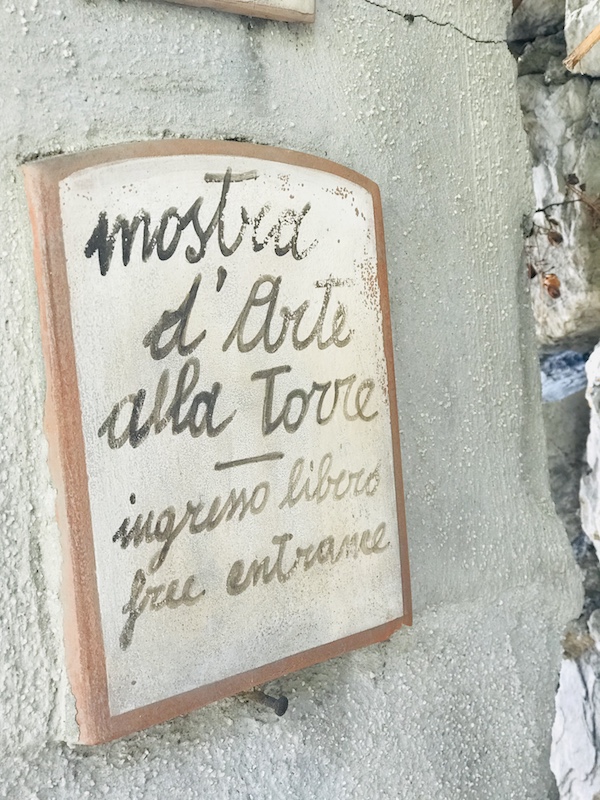 mostra
d'Arte
alla Torre
—
ingresso libero
free entrance